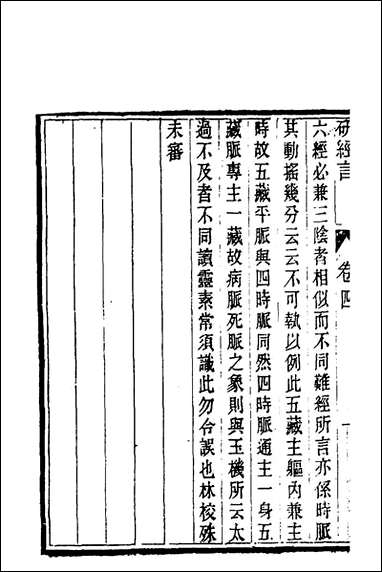 研經言
卷四
六經必兼三陰者相似而不同難經所言亦係時脈
其動搖幾分云云不可執以例此五藏主軀內兼主
時故五藏平脈與四時脈同然四時脈通主一身五
藏脈專主一藏故病脈死脈之象則與玉機所云太
過不及者不同讀靈素常須識此勿令誤也林校殊
未審